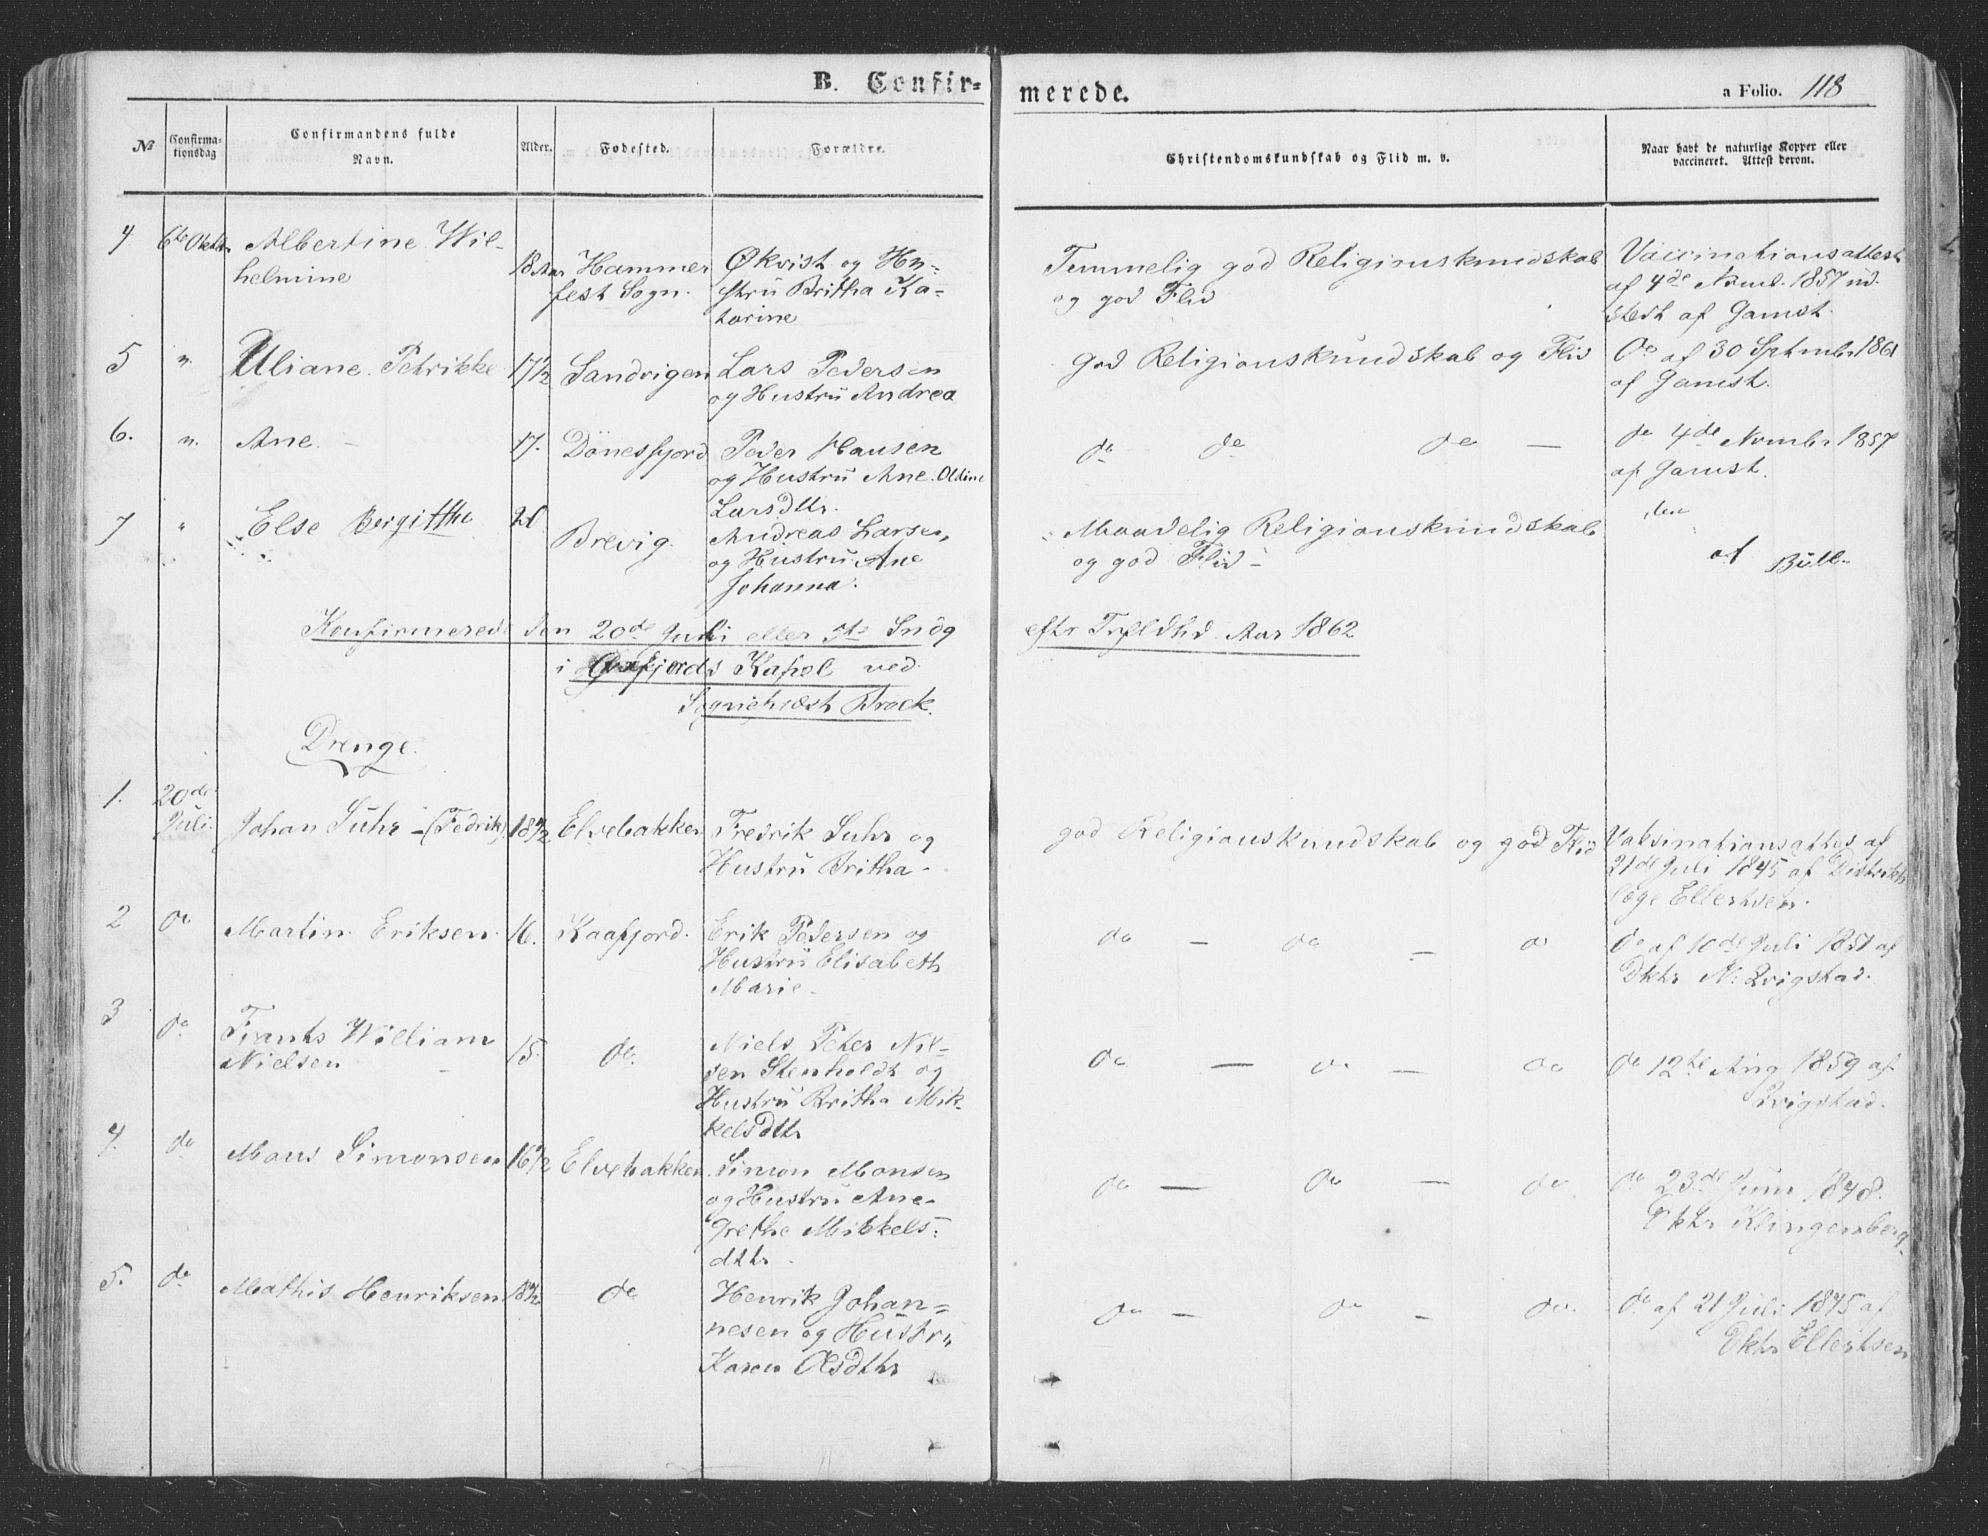 B. Confir-
merede.
a Folio. 118
No
Confirma-
tionsdag
Confirmandens fulde
Navn.
Alder.
Fødested.
Forældre.
Christendomskundskab og Flid m. v.
Naar havt de naturlige Kopper eller
vaccineret. Attest derom.
4 6te Oktbr Albertine Wil-
helmine
18 Aar Hammer
fest Sogn.
Økvist og Hu-
stru Britha Ka-
tarine
Temmelig god Religionskundskab
og god Flid
Vaccinationsattest
af 4de Novmb. 1857 ud
stedt af Gamst.
5 " Uliane Petrikke 17 1/2 Sandvigen Lars Pedersen
og Hustru Andrea
God Religionskundskab og Flid
Do af 30 Sptmbr 1861
af Gamst.
6. " Ane 17. Dönesfjord Peder Hansen
og Hustru Ane Oldine
Larsdtr.
do do do —
do 4de Novmbr 1857
af Gamst.
7 " Else Bergitthe 20 Brevig Andreas Larsen
og Hustru Ane
Johanna.
Maadelig Religionskundskab
og god Flid -
den
af Bull
Konfirmerede den 20de Juli eller 5te Sndg
eftr Trefldhd Aar 1862
i Kapel ved
Sognepræst Brock.
Drenge.
1. 20de
Juli Johan Suhr - (Fedrik) 18 1/2 Elvebakken Fredrik Suhr og
Hustru Britha -
god Religionskundskab og god Flid
Vaksinationsattes af
21de Juli 1845 af Distrikts
læge Ellertsen.
2 do Martin Eriksen 16. Kaafjord. Erik Pedersen og
Hustru Elisabeth
Marie -
do - do - do
do af 10de Juli 1851 af
Dktr N: Qvigstad.
3 do Frants William
Nielsen
15. do. Niels Peter Nil-
sen Stenholdt og
Hustru Britha Mik-
kelsdtr
do — do — do
do 12te Aug 1859 af
Qvigstad.
4. do Mons Simonsen 16 1/2 Elvebakken Simon Monsen
og Hustru Ane
Grethe Mikkels-
dttr.
do — do — do
do 23de Juni 1848.
Dktr Klingenberg.
5. do Mathis Henriksen 18 1/2 do Henrik Johan-
nesen og Hustru
Karen Olsdtr
do - do - do.
do af 21 Juli 1845 af
Dktr Ellertsen